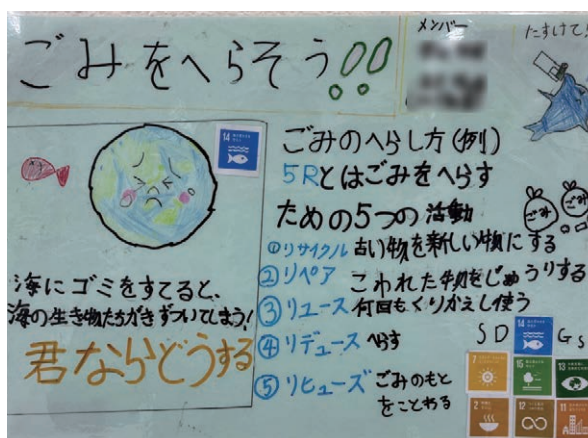 ごみをへらそう!!
メンバー
たすけて!
14
海にゴミをすてると、
海の生き物たちがきずついてしまう!
君ならどうする
ごみのへらし方(例)
5Rとはごみをへらす
ための5つの活動
①リサイクル 古い物を新しい物にする
②リペア こわれた物をしゅうりする
③リユース 何回もくりかえし使う
④リデュース へらす
⑤リヒューズ ごみのもと
をことわる
ごみ
ごみ
SD
GS
14
7
15
13
2
12
11